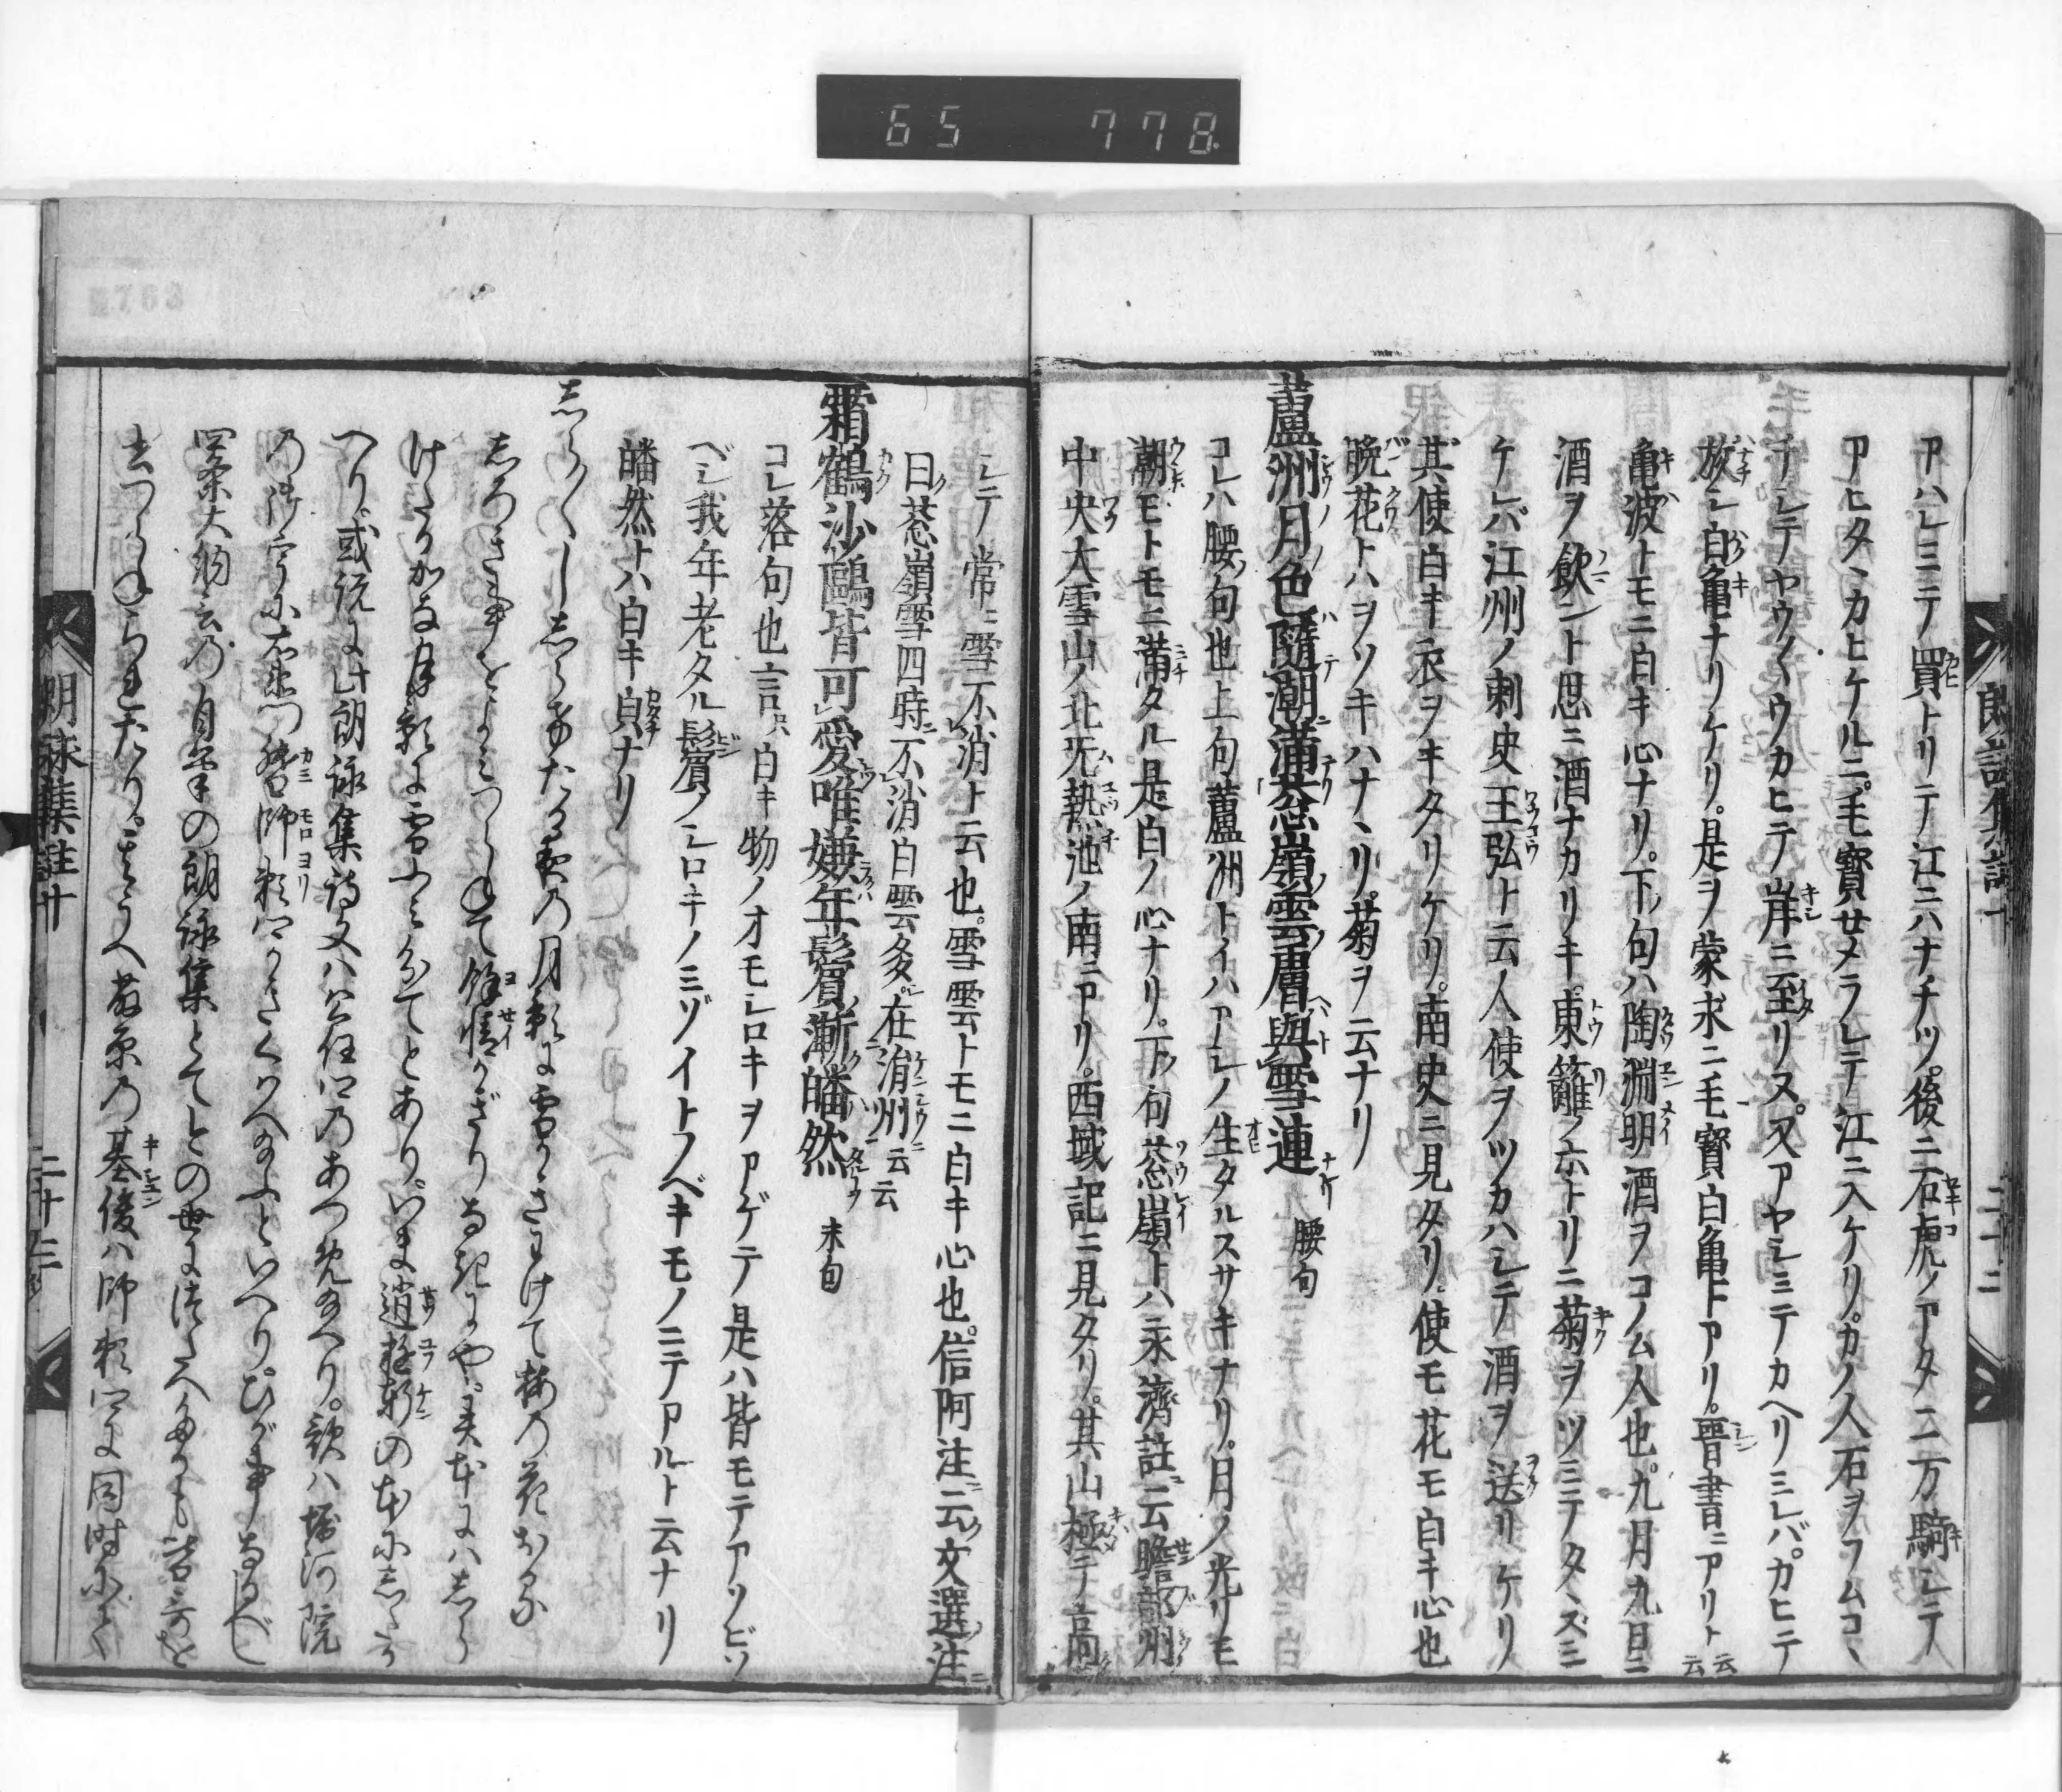 65 778
アハレミテ買トリテ江ニハナチツ。後ニ石虎ノアタ二万騎シテ
アヒタヽカヒケルニ。毛寳せメラレテ江ニ入ケリ。カノ人石ヲフムコヽ
チシテヤウ〱ウカヒテ岸ニ至リヌ。又アヤシミテカヘリミレバ。カヒテ
放シ白亀ナリケリ。是ヲ蒙求ニ毛寳白亀トアリ。晉書ニアリト云云
亀波トモニ白キ心ナリ。下ノ句ハ陶淵明酒ヲコノム人也。九月九日ニ
酒ヲ飲ント思ニ酒ナカリキ。東籬ノ六トリニ菊ヲツミテタヽズミ
ケレバ江州ノ刺史王弘ト云人使ヲツカハシテ酒ヲ送リケリ
其使白キ衣ヲキタリケリ。南史ニ見タリ。使モ花モ白キ心也
晩花トハヲソキハナヽリ。菊ヲ云ナリ
蘆洲月色隨潮滿葱嶺雲膚與雪連 腰句
コレハ腰ノ句也上句ハ蘆洲トイハアシノ生タルスサキナリ。月ノ光リモ
潮モトモニ滿タル是白ノ心ナリ。下ノ句葱嶺トハ永濟註ニ云瞻部州
中央大雪山ノ北无熱池ノ南ニアリ。西域記ニ見タリ。其山極テ高
朗詠集註十 二十二
シテ常ニ雪不消ト云也。雪雲トモニ白キ心也。信阿注ニ云文選注ニ
曰葱嶺雪四時不消白雲多在洕州云云
霜鶴沙鷗皆可愛唯嫌年鬢漸皤然 末句
コレ落句也言ハ白キ物ノオモシロキヲアゲテ是ハ皆モテアソビツ
ベシ我年老タル鬢ノシロキノミゾイトフベキモノニテアルト云ナリ
皤然トハ白キ貞ナリ
しら〱ししらけたる夜の月影に雪かきわけて梅の花おる
しろき事をよみつらねて餘情かぎりなきにや。異本にはしら
けたるかな月影に雪ふみ分てとあり。いま逍遊軒の本にしたか
へり。或説に此朗詠集詩文ハ公任卿のあつめ給へり。歌ハ堀河院
の御宇に左衛門督師頼卿かきくハへ給ふといへり。ひが事なるべし
四条大納言の自筆の朗詠集とてその世につたへ
去つらねられたり。そのうへ藤原の基俊ハ師頼卿に同時にて
朗詠集註十 二十二